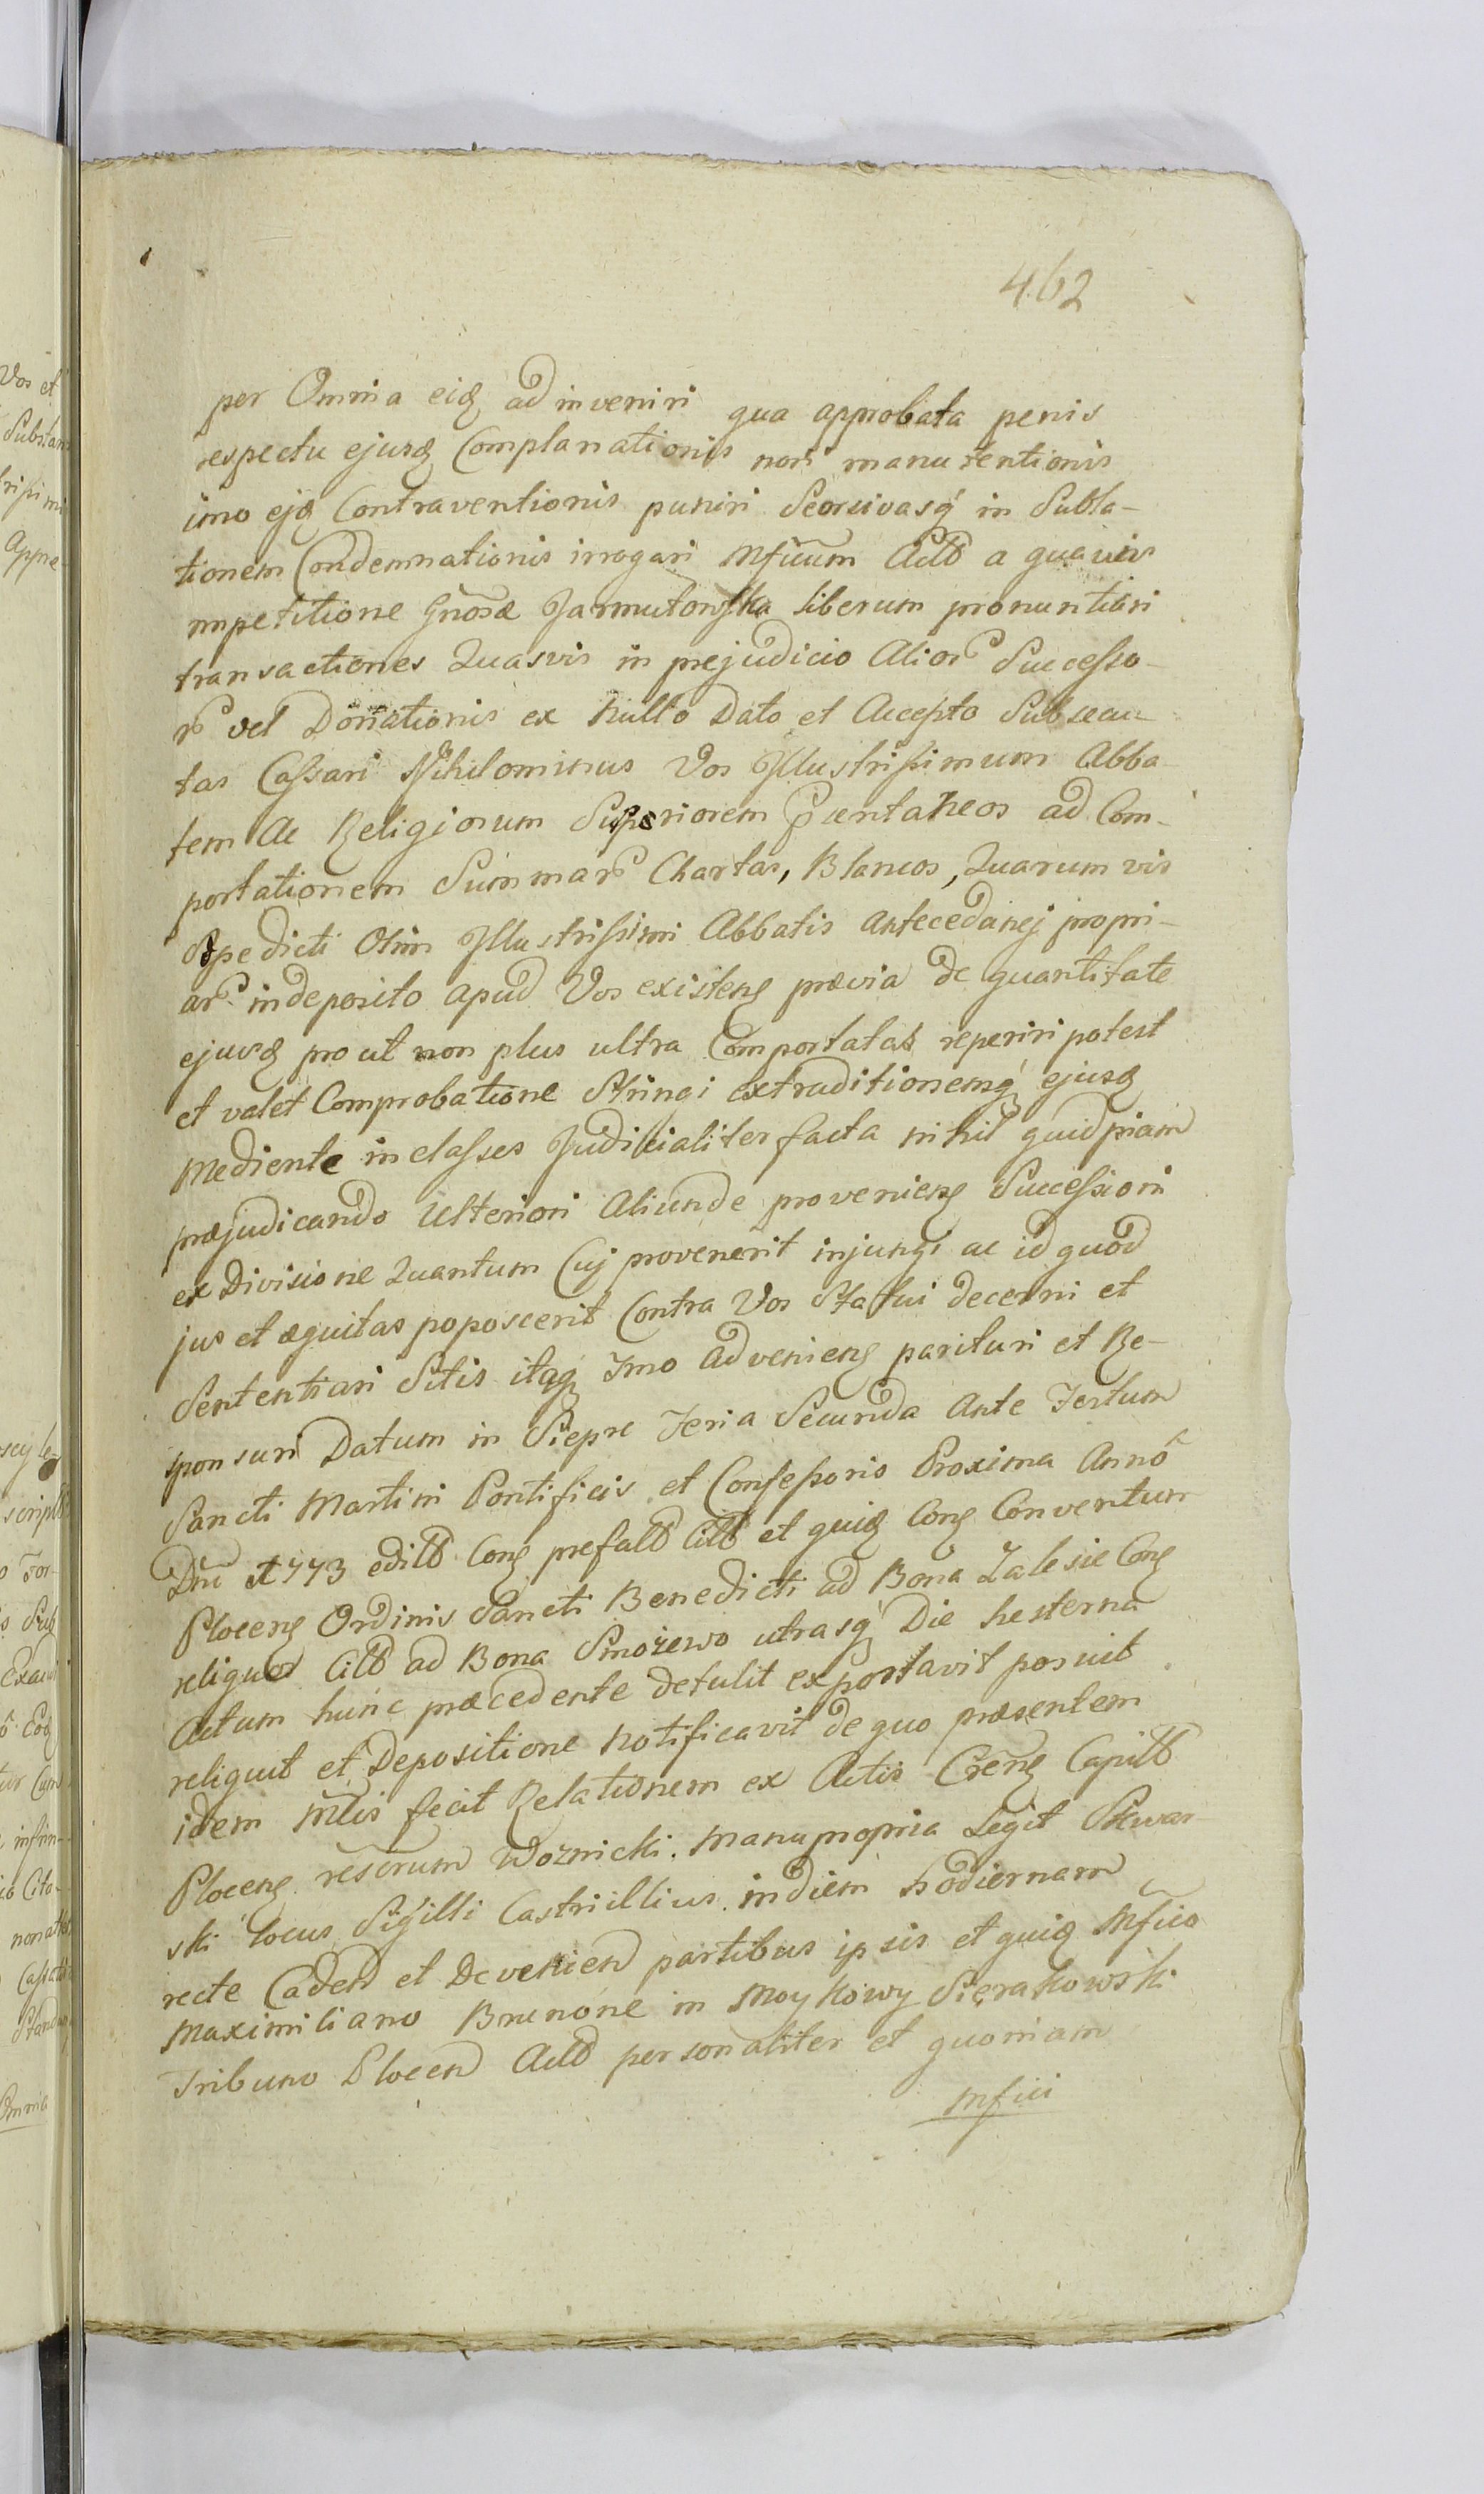 462
per Omnia eidq adinveniri qua approbata penis
respectu ejusdq Complanationis non manutentionis
imo ejq Contraventionis puniri Seorsivasq in Subla-
tionem Condemnationis irrogari Mficum Actt a quavis
impetitione Gnosæ Jarmutowska liberum pronuntiari
transactiones Quasvis in prejudicio Alior Successo-
r vel Donationis ex nullo Dato et Accepto Subsecu-
tas Cassari Nihilominus Vos Illustrissimum Abba-
tem Ac Religiosum Superiorem ad Com-
portationem Summar Chartas, Blancos, Quarum vis
Spedicti Olim Illustrissimi Abbatis Antecedanej propri-
ar in deposito apud Vos existenq prævia de quantitate
ejusdq prout non plus ultra Comportatas reperiri potest
et valet Comprobatione Stringi extraditionemq ejusdq
Mediente in classes Judicialiter facta nihil quidpiam
præjudicando Ulteriori Aliunde provenienq Successioni
ex Divisione Quantum Cuj provenerit injungi ac id quod
jus et æquitas poposcerit Contra Vos Statui decerni et
Sententiari Sitis itaq Imo Advenienq parituri et Re-
sponsuri Datum in Sieprc Feria Secunda Ante Festum
Sancti Martini Pontificis et Confessoris Proxima Anno
Dni 1773 editt Conq prefatt Citt et quidq Conq Conventum
Plocenq Ordinis Sancti Benedicti ad Bona Zalesie Conq
reliquos Citt ad Bona Smorzewo utrasq Die hesterna
Actum hunc præcedente detulit exportavit posuit
reliquit et Depositione notificavit de quo præsentem
idem Mlis fecit Relationem ex Actis Csenq Capitt
Plocenq rescrum Woznicki. manupropria Legit Skwar-
ski locus Sigilli Castri illius. in diem hodiernam
recte Caden et Devenien partibus ipsis et quidq Mfico
Maximiliano Brunone in Moykowy Sierakowski
Tribuno Plocen Actt personaliter et quoniam
Mfici